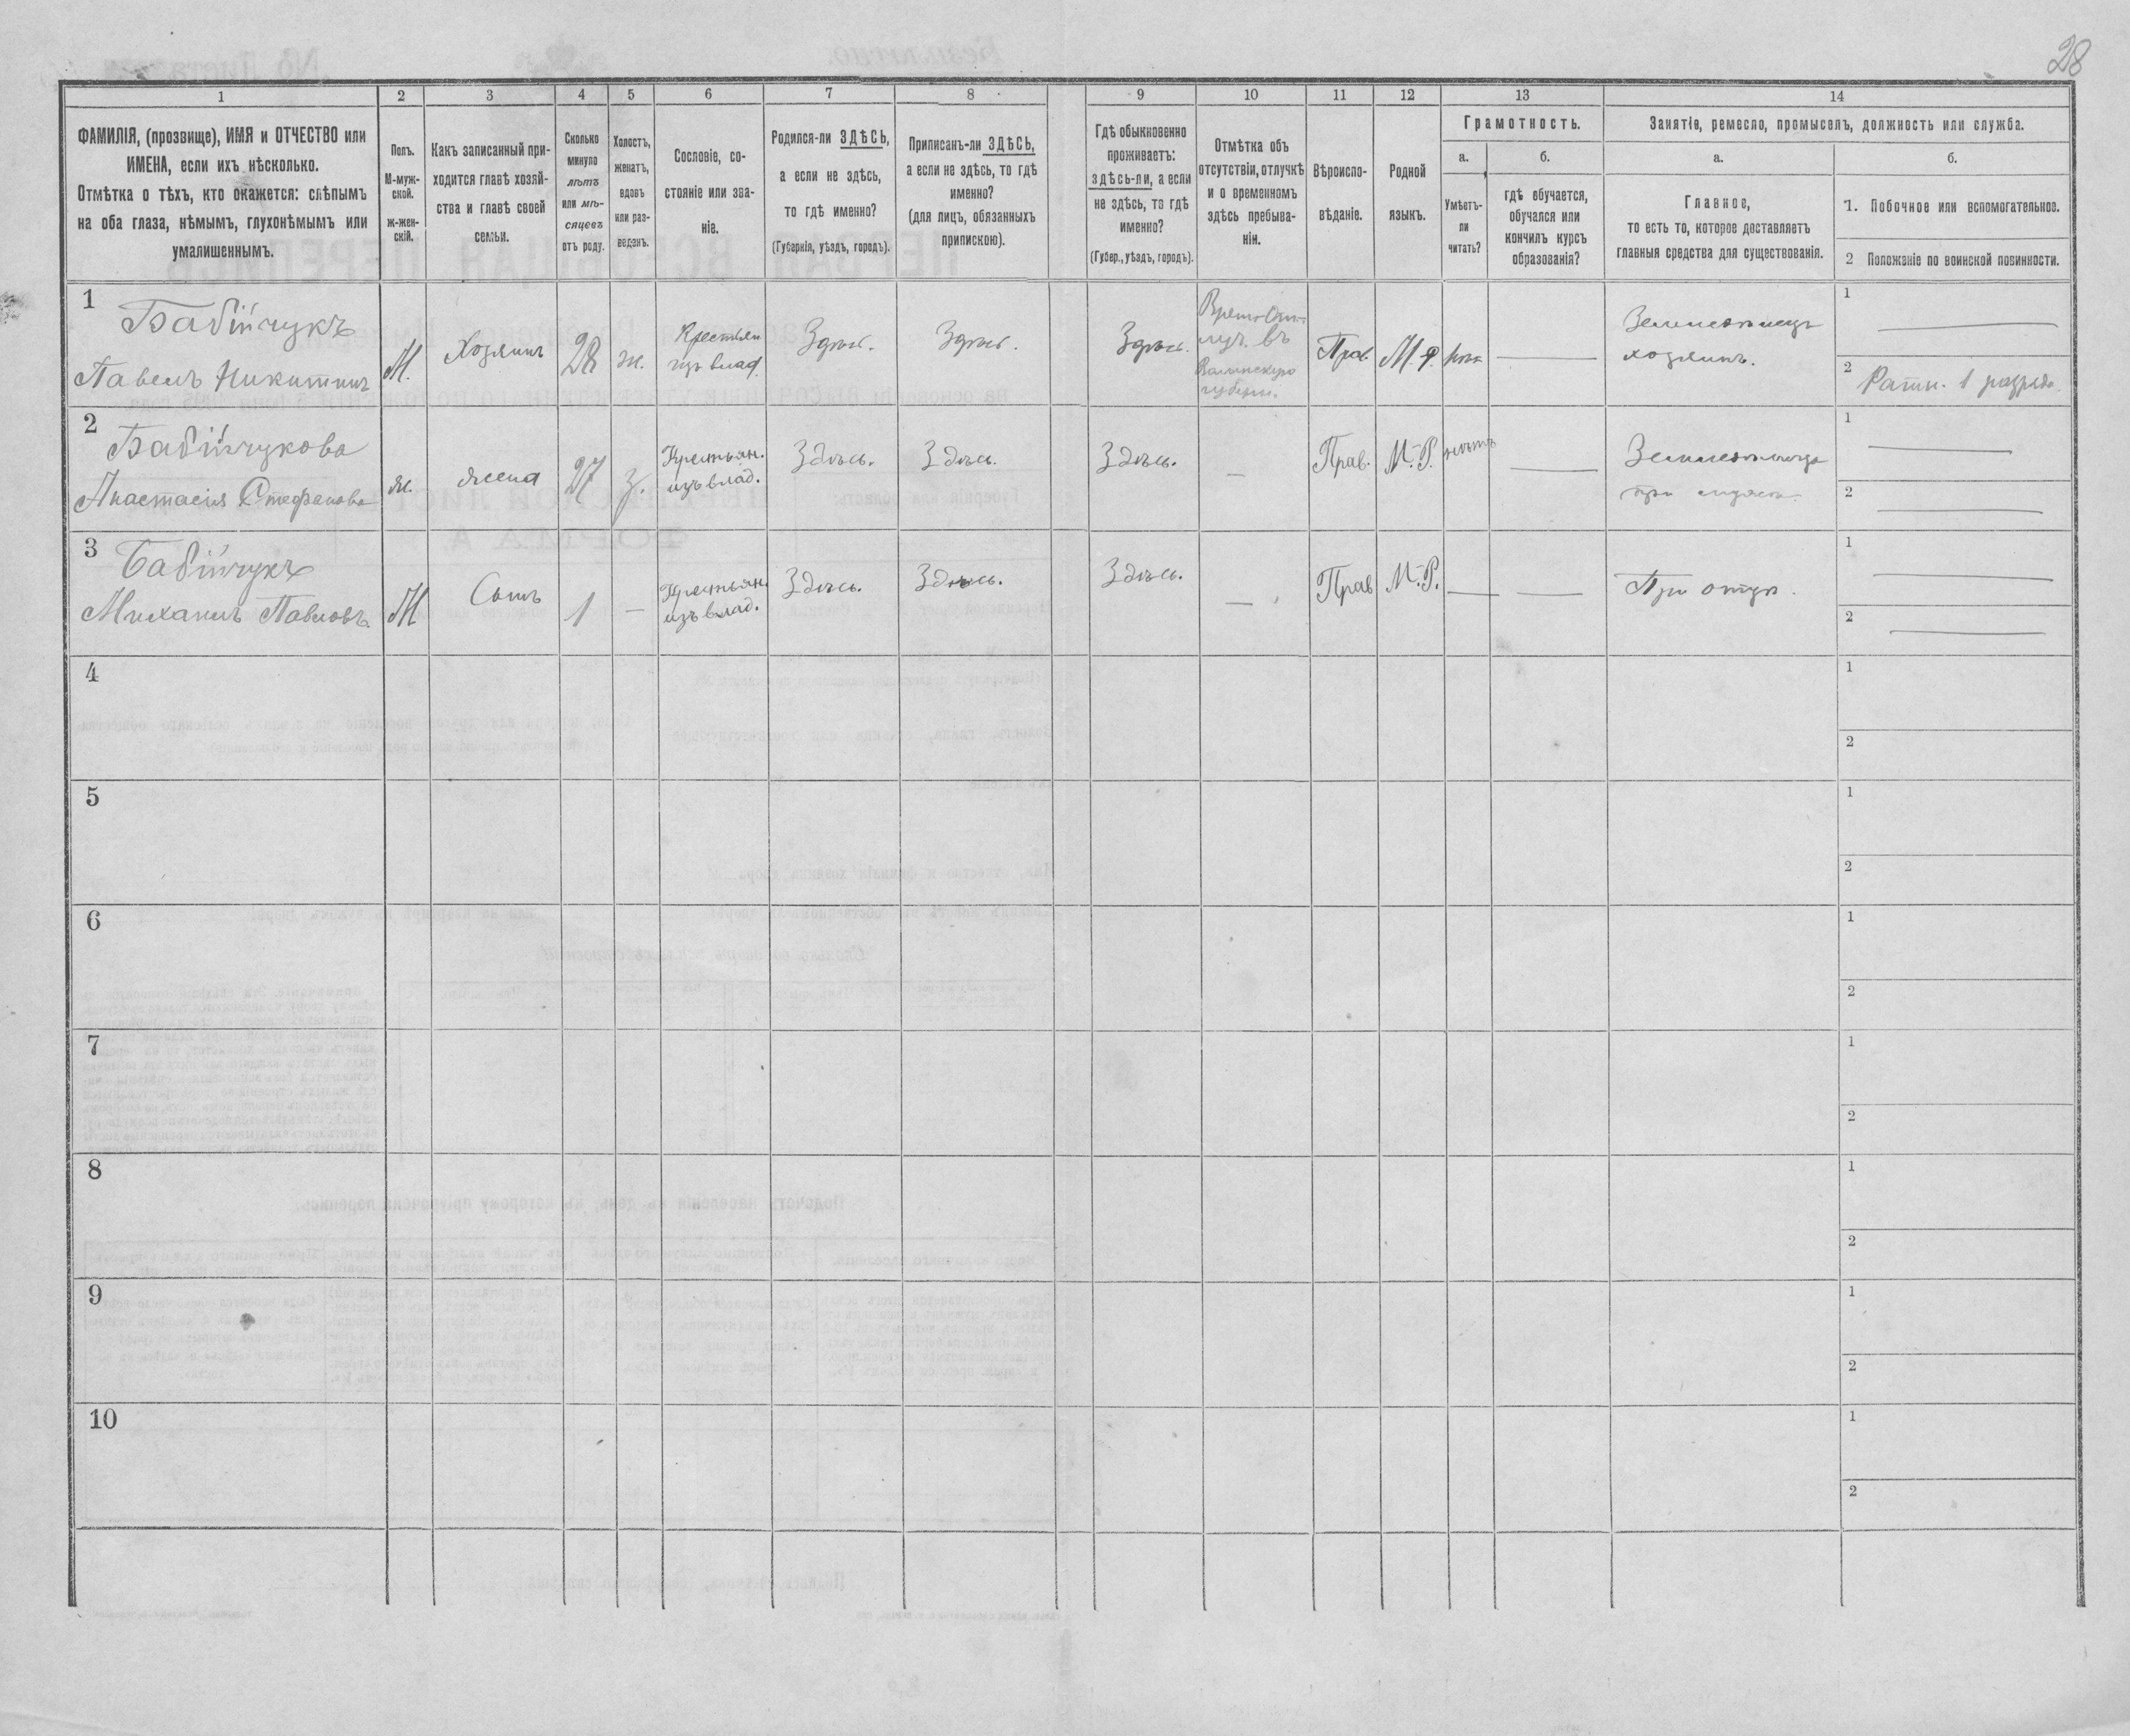 28
1 2 3 4 5 6 7 8 9 10 11 12 13 14
ФАМИЛІЯ, (прозвище), ИМЯ и ОТЧЕСТВО или
ИМЕНА, если ихъ нѣсколько.
Отмѣтка о тѣхъ, кто окажется: слѣпымъ
на оба глаза, нѣмымъ, глухонѣмымъ или
умалишеннымъ.
Полъ.
М-муж-
ской.
ж-жен-
скій.
Какъ записанный при-
ходится главѣ хозяй-
ства и главѣ своей
семьи.
Сколько
минуло
лѣтъ
или мѣ-
сяцевъ
отъ роду.
Холостъ,
женатъ,
вдовъ
или раз-
веденъ.
Сословіе, со-
стояніе или зва-
ніе.
Родился-ли ЗДѢСЬ,
а если не здѣсь,
то гдѣ именно?
(Губернія, уѣздъ, городъ).
Приписанъ-ли ЗДѢСЬ,
а если не здѣсь, то гдѣ
именно?
(для лицъ, обязанныхъ
припискою).
Гдѣ обыкновенно
проживаетъ:
здѣсь-ли, а если
не здѣсь, то гдѣ
именно?
(Губер., уѣздъ, городъ).
Отмѣтка объ
отсутствіи, отлучкѣ
и о временномъ
здѣсь пребыва-
ніи.
Вѣроиспо-
вѣданіе.
Родной
языкъ.
Грамотность.
а.
Умѣетъ-
ли
читать?
б.
гдѣ обучается,
обучался или
кончилъ курсъ
образованія?
Занятіе, ремесло, промыселъ, должность или служба.
а.
Главное,
то есть то, которое доставляетъ
главныя средства для существованія.
б.
1. Побочное или вспомогательное.
2 Положеніе по воинской повинности.
1
Бабійчукъ
Павелъ Никитинъ
М.
Хозяинъ
28
ж.
Крестьян
изъ влад.
Здѣсь.
Здѣсь.
Здѣсь.
въ
губерн.
Прав.
М. Р.
—
Землевладѣлецъ
хозяинъ.
1 —
2 Ратн. 1 разряд.
2
Бабійчукова
Анастасія Стефанова
ж.
жена
27
з.
Крестьян.
изъ влад.
Здѣсь.
Здѣсь.
Здѣсь.
—
Прав.
М. Р.
нѣтъ
—
при
1 —
2 —
3
Бабійчукъ
Михаилъ Павловъ
М
Сынъ
1
—
Крестьян.
изъ влад.
Здѣсь.
Здѣсь.
Здѣсь.
—
Прав
М. Р.
—
—
При отцѣ.
1 —
2 —
4
1
2
5
1
2
6
1
2
7
1
2
8
1
2
9
1
2
10
1
2